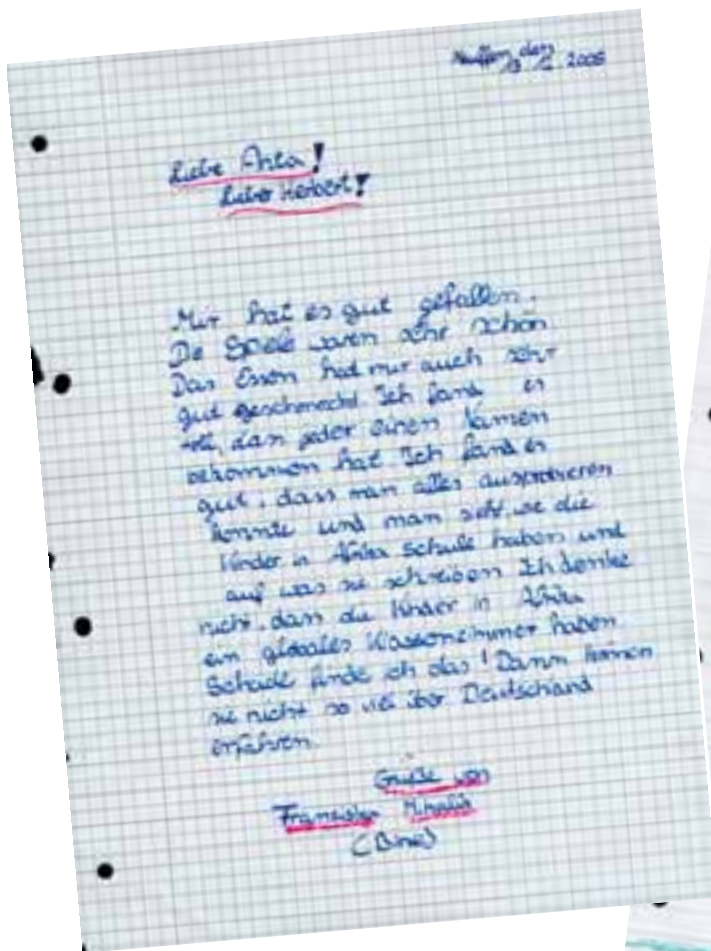 den 2006
Liebe Anta!
Lieber Herbert!
Mir hat es gut gefallen.
Die Spiele waren sehr schön
Das Essen hat mir auch sehr
gut geschmeckt. Ich fand es
toll, dass jeder einen Namen
bekommen hat. Ich fand es
gut, dass man alles ausprobieren
konnte und man sieht, wie die
Kinder in Afrika Schule haben und
auf was sie schreiben. Ich denke
nicht, dass die Kinder in Afrika
ein globales Klassenzimmer haben
Schade finde ich das! Dann können
sie nicht so viel über Deutschland
erfahren.
Grüße von
Franziska